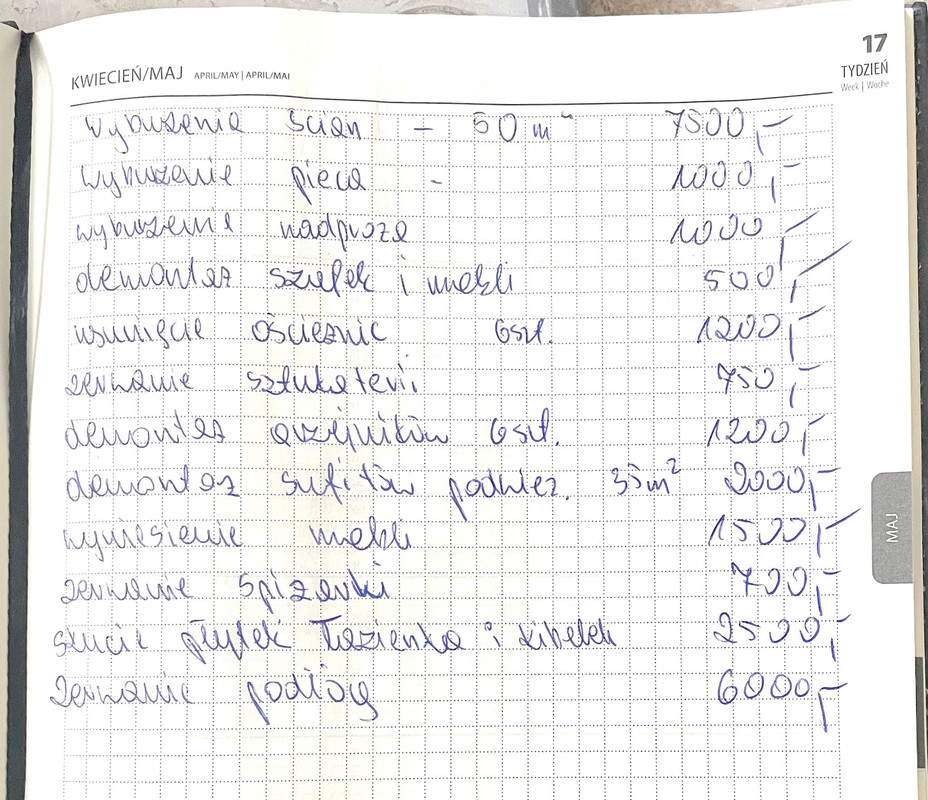 17
KWIECIEŃ/MAJ APRIL/MAY | APRIL/MAI
TYDZIEŃ
Week | Woche
Wyburzenia ścian - 50 m² 7500,-
Wyburzenie pieca - 1000,-
wyburzenie nadproża 1000,-
demontaż szafek i mebli 500,-
usunięcie ościeżnic 6szt. 1200,-
zerwanie sztukaterii 750,-
demontaż grzejników 6szt. 1200,-
demontaż sufitów podwiesz. 35m² 2000,-
wyniesienie mebli 1500,-
zerwanie spiżarki 700,-
skucie płytek łazienka i kibelek 2500,-
zerwanie podłóg 6000,-
MAJ